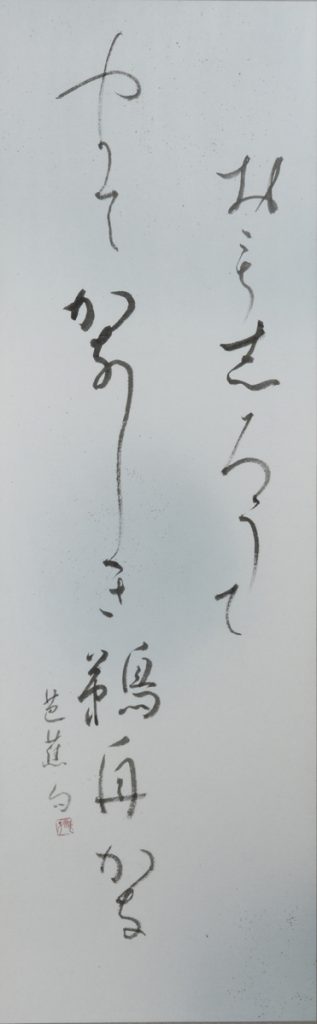 おも志ろうて
やかてかなしき鵜舟かな
芭蕉句